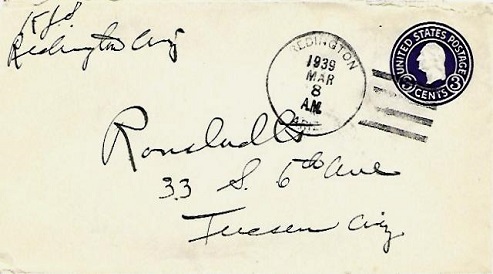 Redington Ariz
REDINGTON
1939
MAR
8
AM
ARIZ.
UNITED STATES POSTAGE
3 CENTS 3
Ronstadts
33 S. 6th Ave
Tucson Ariz